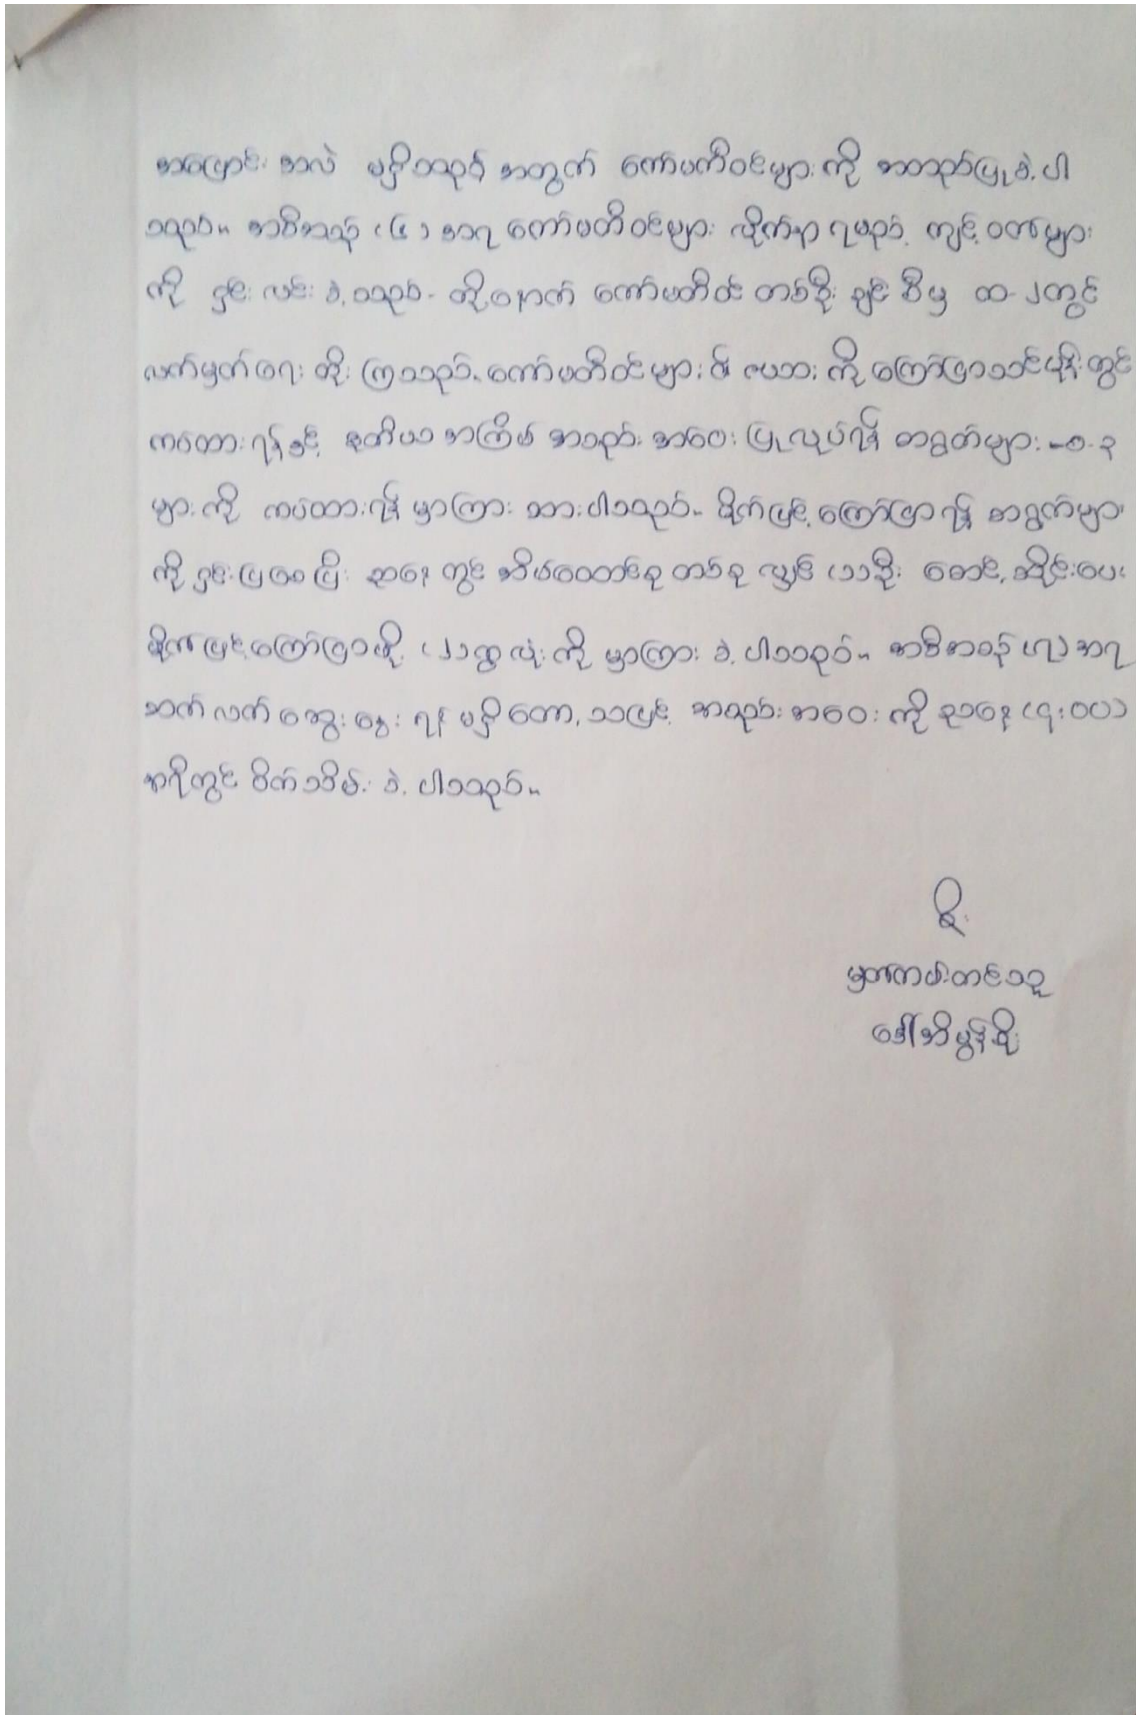 အပြောင်းအလဲ မရှိသည့် အတွက် ကော်မတီဝင်များကို အတည်ပြုခဲ့ပါ
သည်။ အစီအစဉ် (၆) အရ ကော်မတီဝင်များ လိုက်နာရမည့် ကျင့်ဝတ်များ
ကို ရှင်းလင်းခဲ့သည်။ ထို့နောက် ကော်မတီဝင် တစ်ဦးချင်းစီမှ ထ-၂တွင်
လက်မှတ်ရေးထိုးကြသည်။ ကော်မတီဝင်များ၏ ဇယားကို ကြော်ငြာသင်ပုန်းတွင်
ကပ်ထားရန်နှင့် ဒုတိယအကြိမ် အစည်းအဝေး ပြုလုပ်ရန် စာရွက်များ
များကို ကပ်ထားရန် မှာကြားထားပါသည်။ ဖိတ်ခေါ်ကြော်ငြာရန် စာရွက်များ
ကို ရှင်းပြပေးပြီး ညနေတွင် အိမ်ထောင်စု တစ်စုလျှင် (၁)ဦး
ကို မှာကြားခဲ့ပါသည်။ အစီအစဉ် (၇) အရ
ဆက်လက်ဆွေးနွေးရန် မရှိတော့သဖြင့် အစည်းအဝေးကို ညနေ (၄:၀၀)
အချိန်တွင် ပိတ်သိမ်းခဲ့ပါသည်။
မှတ်တမ်းတင်သူ
ဒေါ်အိမွန်စိုး